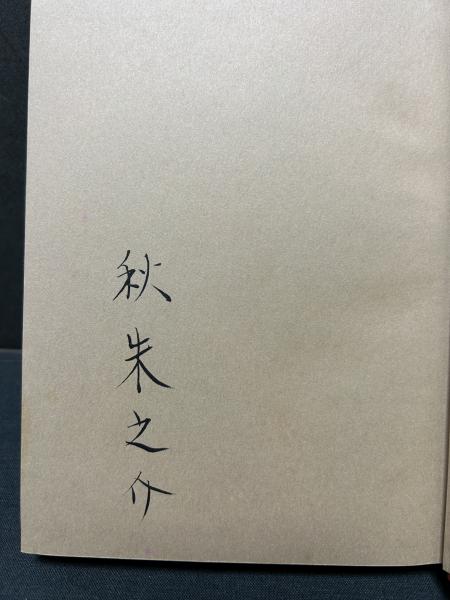 秋朱之介